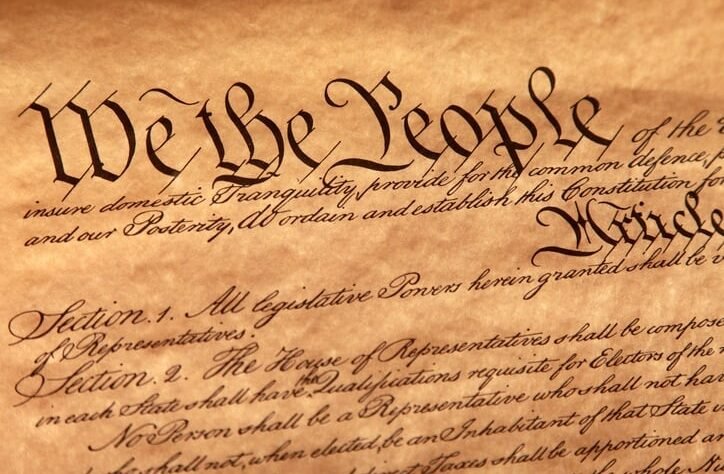 We the People of the
insure domestic Tranquility, provide for the common defence,
and our Posterity, do ordain and establish this Constitution for
Article
Section. 1. All legislative Powers herein granted shall be
of Representatives.
Section. 2. The House of Representatives shall be compose
in each State shall have the Qualifications requisite for Electors of the
No Person shall be a Representative who shall not have
who shall not, when elected, be an Inhabitant of that State
direct Taxes shall be apportioned
whole